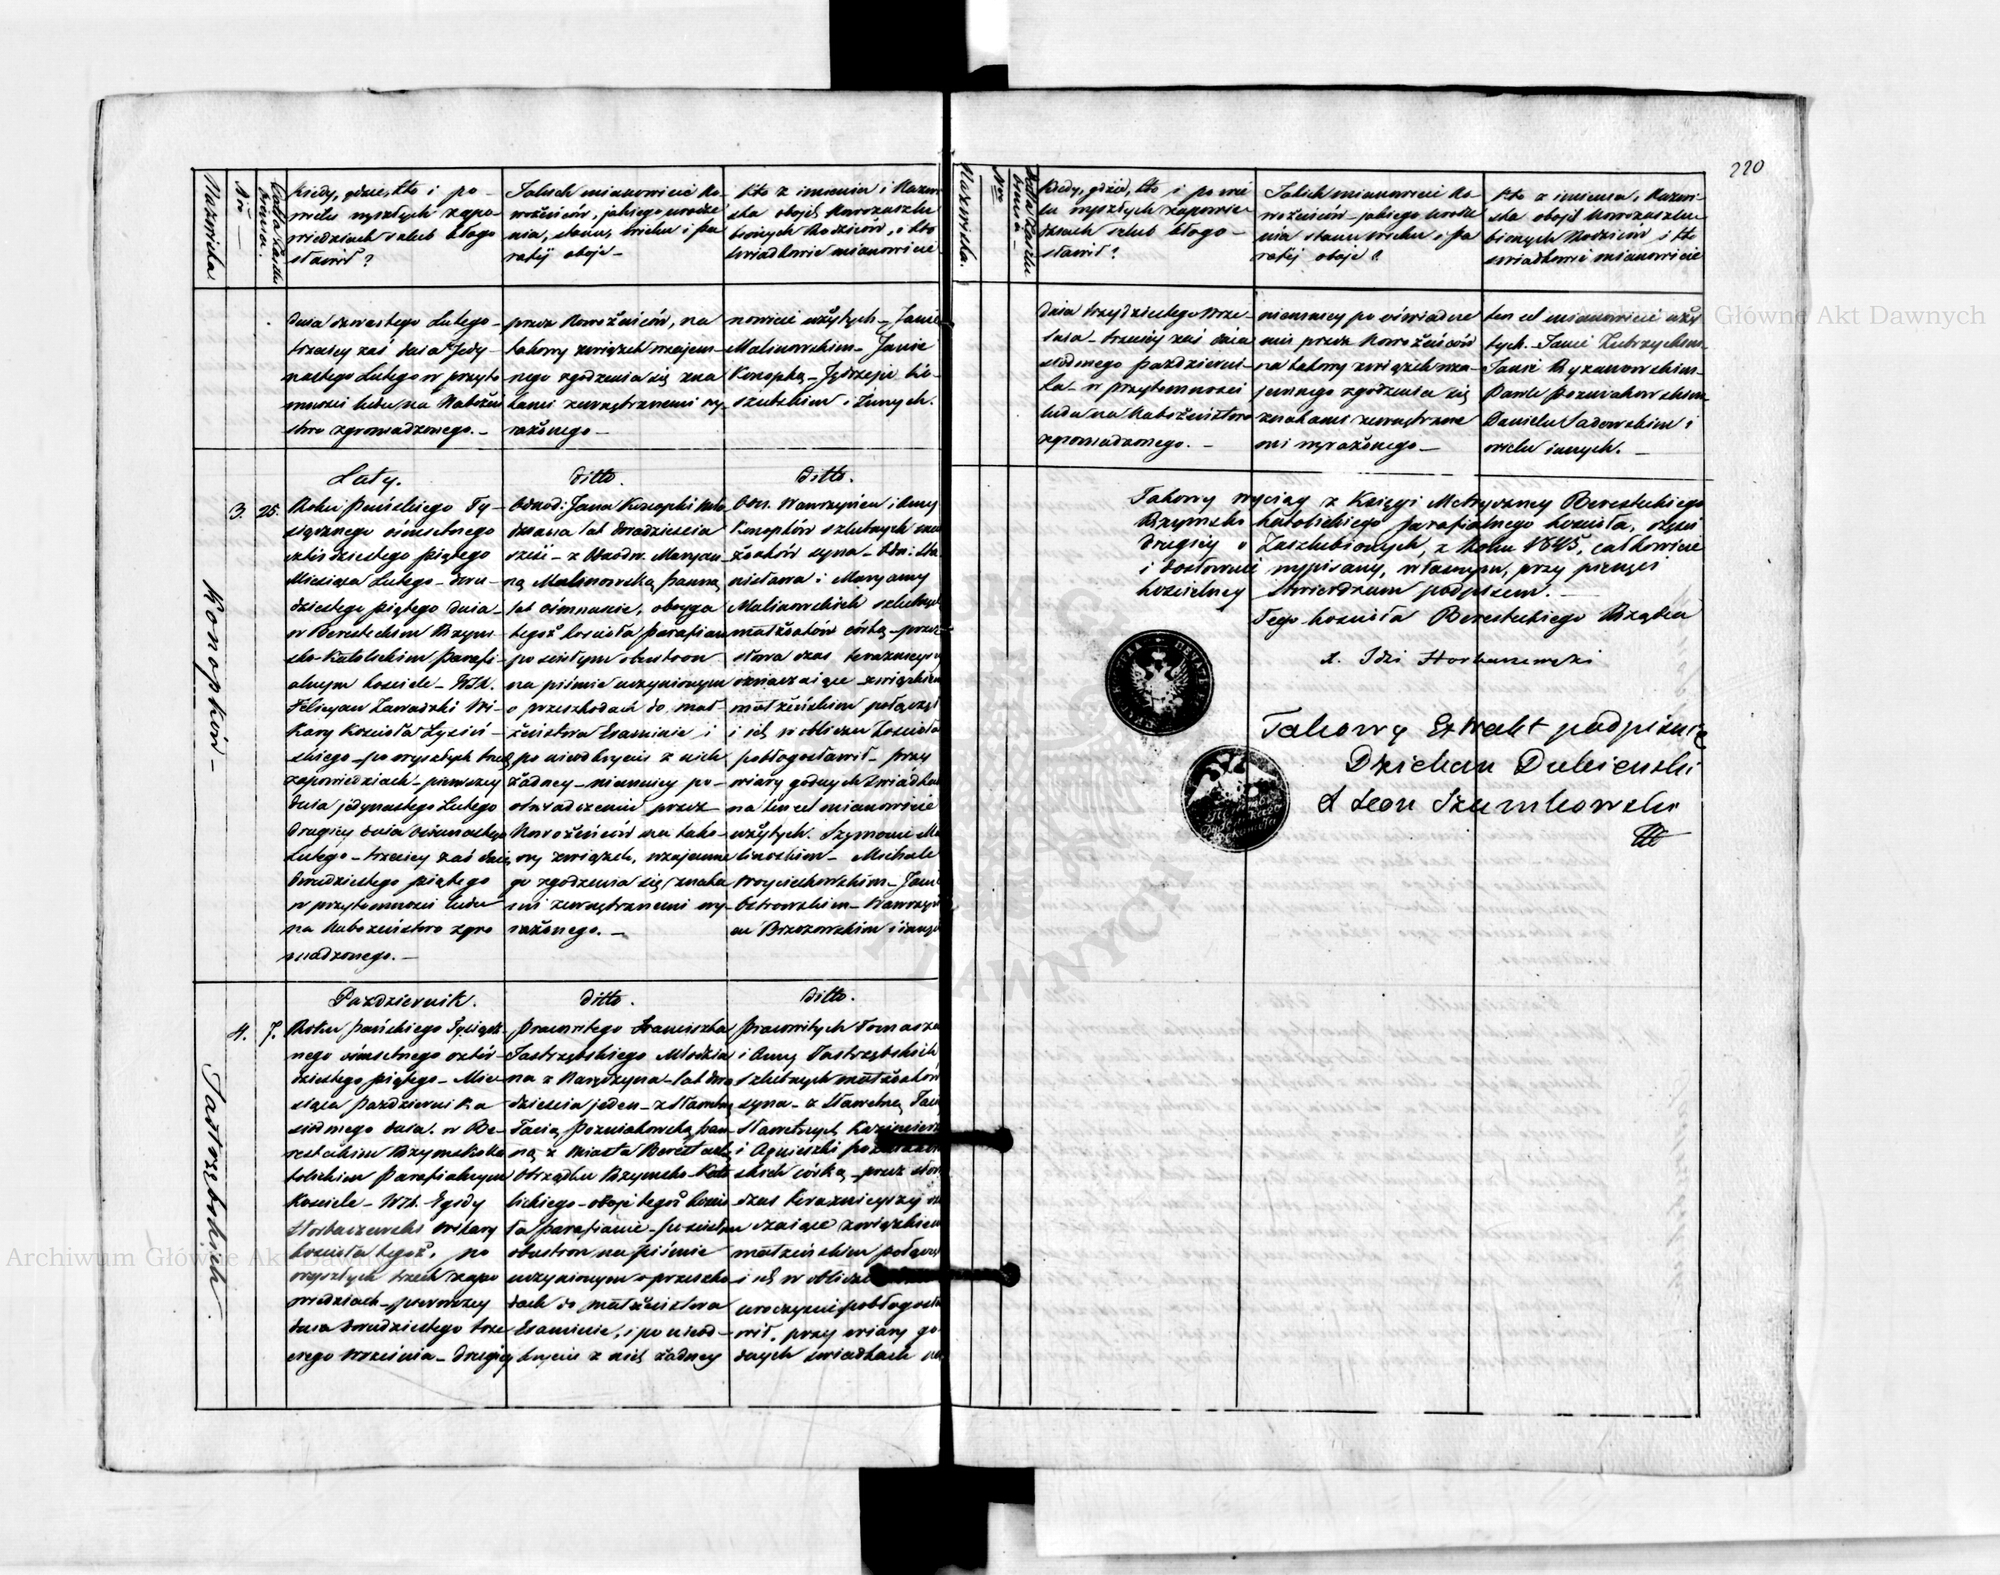 220
Nazwiska
Nro
Kiedy, gdzie, kto i po
wielu wyszłych zapo
wiedziach szlub błogo
sławił?
Jakich mianowicie No
wożeńców, jakiego urodze
nia, stanu, wieku i pa
rafij oboje
Kto z imienia i Nazwi
ska obojch Nowozaszlu
bionych Rodziców, i kto
świadkowie mianowicie
dnia czwartego Lutego
trzeciey zaś dnia Jedy
nastego Lutego w przyto
mności ludu na Nabożeń
stwo zgromadzonego.
przez Nowożeńców, na
takowy związek wzajem
nego zgodzenia się zna
kami zewnętrznemi wy
rażonego
nowicie użytych Janie
Malinowskim Janie
Konopką Jędrzeju
i innych.
Luty.
ditto.
ditto.
3.
25.
Konopków
Roku Pańskiego Ty
siącznego ośmsetnego
czterdziestego piątego
Miesiąca Lutego dwu
dziestego piątego dnia
w Beresteckim Rzym
sko Katolickim Parafi
alnym kościele WJX.
Felicyan Zawadzki Wi
kary Kościoła
skiego po wyszłych trzech
zapowiedziach pierwszey
dnia jedynastego Lutego
drugiey dnia ośmnastego
Lutego trzeciey zaś dnia
dwudziestego piątego
w przytomności ludu
na Nabożeństwo zgro
madzonego.
Jana Konopki Mło
dziana lat dwadzieścia
sześć z Maryan
ną Malinowską panną
lat ośmnaście, obojga
tegoż kościoła parafian
po ścisłym obustron
na piśmie uczynionym
o przeszkodach do mał
żeństwa Examinie i
po nieodkryciu z nich
żadney niemniey po
oświadczeniu przez
Nowożeńców na tako
wy związek, wzajemne
go zgodzenia się znaka
mi zewnętrznemi wy
rażonego.
Wawrzyńca i Anny
Konopków szlubnych mał
żonków syna Sta
nisława i Maryanny
Malinowskich szlubnych
małżonków córką przez
słowa czas teraźnieyszy
oznaczaiące związkiem
małżeńskim połączył
i ich w obliczu kościoła
pobłogosławił przy
wiary godnych świadkach
na ten cel mianowicie
użytych. Szymonie Ma
linowskim Michale
Woyciechowskim Janie
Ostrowskim Wawrzyń
cu Brzozowskim i innych
Pazdziernik.
ditto.
ditto.
4.
7.
Jastrzębskich.
Roku pańskiego Tysiącz
nego ośmsetnego czter
dziestego piątego Mie
siąca Pazdziernika
siódmego dnia. w Be
resteckim Rzymsko ka
tolickim Parafialnym
Kościele WJX. Egidy
Horbaczewski wikary
kościoła tegoż, po
wyszłych trzech zapo
wiedziach pierwszey
dnia dwudziestego trze
ciego września drugiey
Pracowitego Franciszka
Jastrzębskiego Młodzia
na z lat dwa
dzieścia jeden z Sławetną
Pozniakowską pan
ną z Miasta Berestecz
Obrządku Rzymsko Kato
lickiego oboje tegoż kościo
ła parafianie po ścisłem
obustron na piśmie
uczynionym o przeszko
dach do małżeństwa
Examinie, i po nieod
kryciu z nich żadney
Pracowitych Tomasza
i Anny Jastrzębskich
szlubnych małżonków
syna z Sławetną
Sławetnych Kazimierz
i Agnieszki
skich córką przez słowa
czas teraznieyszy ozna
czaiące związkiem
małżeńskim połączył
i ich w obliczu
uroczyście pobłogosła
wił, przy wiary go
dnych świadkach na
Nazwiska.
Nro
Kiedy, gdzie, kto i po wie
lu wyszłych zapowie
dziach szlub błogo
sławił?
Jakich mianowicie No
wożeńców jakiego urodze
nia stanu wieku i pa
rafij oboje?
Kto z imienia, Nazwi
ska obojch Nowozaszlu
bionych Rodziców i kto
świadkowie mianowicie
dnia trzydziestego Wrze
śnia trzeciey zaś dnia
siódmego pazdzierni
ka w przytomności
ludu na Nabożeństwo
zgromadzonego.
niemniey po oświadcze
niu przez Nowożeńców
na takowy związek wza
jemnego zgodzenia się
znakami zewnętrzne
mi wyrażonego
ten cel mianowicie uży
tych. Janie
Janie Ryzanowskim
Pawle Pozniakowskim
Danielu Sadowskim i
wielu innych.
Takowy wyciąg z Księgi Metryczney Beresteckiego
Rzymsko katolickiego Parafialnego kościoła, części
drugiey o Zaszlubionych, z Roku 1845, całkowicie
i dosłownie wypisany, własnym, przy pieczęci
kościelney stwierdzam podpisem.
Tego kościoła Beresteckiego Rządca
X. Idzi Horbaczewski
Takowy Extrakt podpisuię
Dziekan Dubienski
X Leon Szumkowski
Archiwum Główne Akt Dawnych
Główne Akt Dawnych